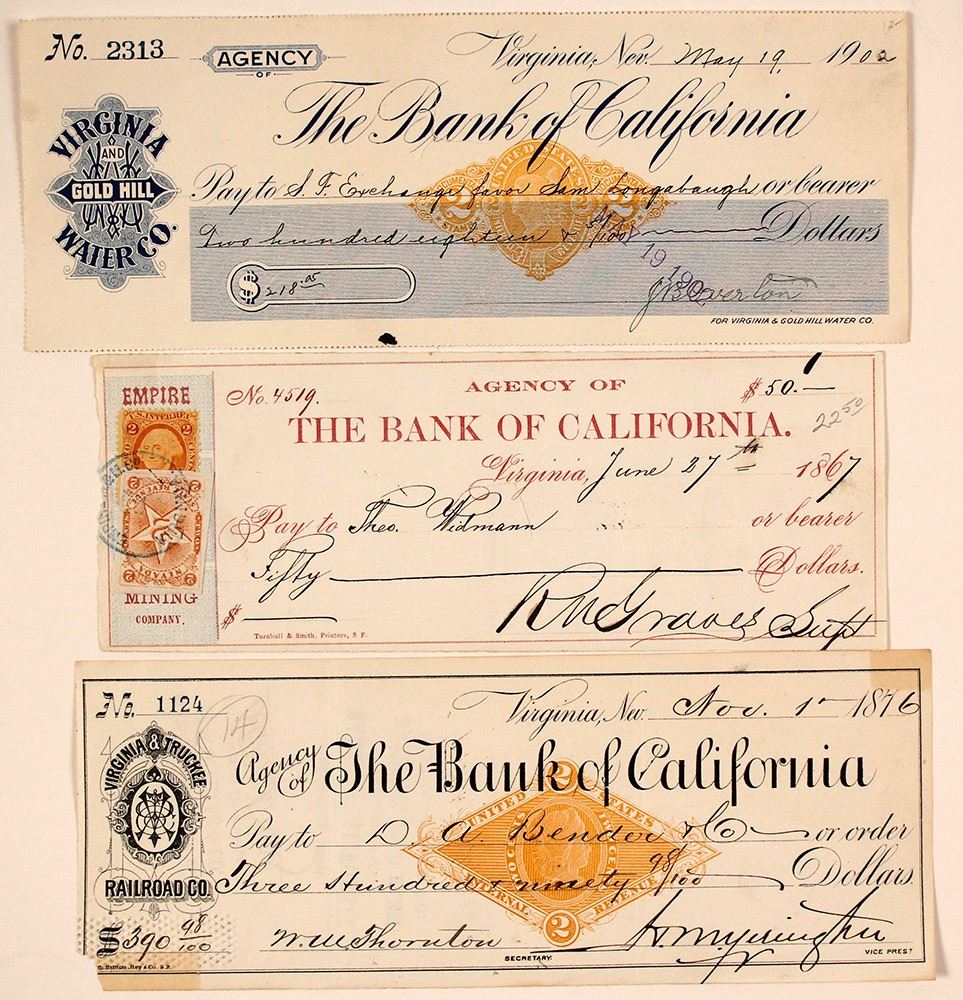 No. 2313
AGENCY
OF
Virginia, Nev. May 19, 1902
12-
The Bank of California
VIRGINIA
AND
GOLD HILL
WATER CO.
Pay to S. F. Exchange favor Sam Longabaugh or bearer
Two hundred eighteen & 05/100 Dollars
UNITED STATES
2 2
$ 218.05
19 1902
J B Overton
FOR VIRGINIA & GOLD HILL WATER CO.
EMPIRE
No. 4519.
AGENCY OF
$ 50.—
THE BANK OF CALIFORNIA.
22 50
Virginia, June 27th 1867
U.S. INTER. REV.
2 2
CENTS
Pay to Theo. Widmann or bearer
Fifty Dollars.
NEVADA
MINING
COMPANY.
$
Turnbull & Smith, Printers, S F.
Supt
No. 1124
14
Virginia, Nev. Nov. 1st 1876
VIRGINIA & TRUCKEE
RAILROAD CO.
Agency of The Bank of California
2
UNITED STATES
Pay to D. A. Bender & Co or order
Three Hundred & ninety 98/100 Dollars.
INTERNAL REVENUE
2
$390 98/100
W. M. Thornton
SECRETARY.
H. M. Yerington
VICE PREST